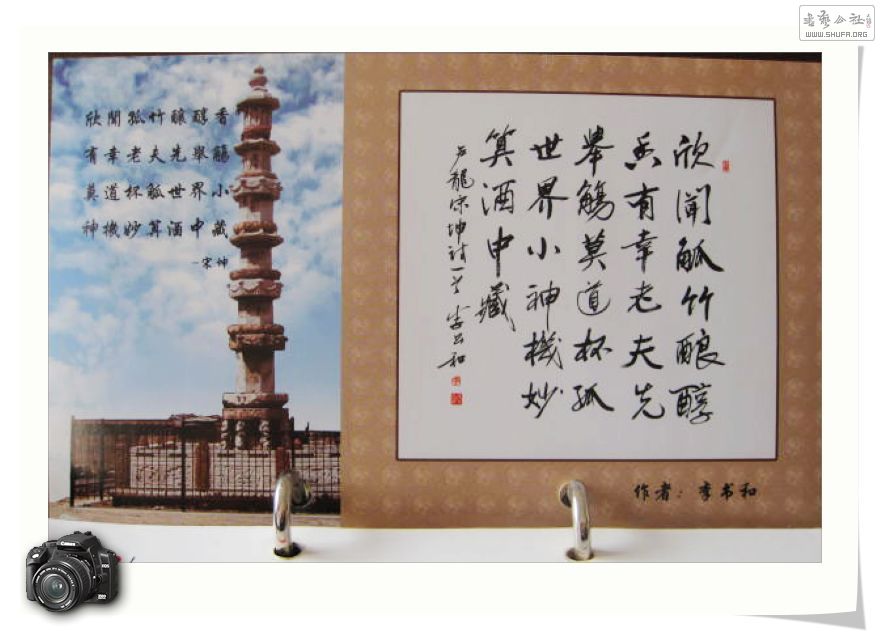 欣聞孤竹酿醇香
有幸老夫先舉觴
莫道杯觚世界小
神機妙算酒中藏
-宋坤
欣聞觚竹酿醇
香有幸老夫先
舉觴莫道杯孤
世界小神機妙
算酒中藏
卢龍宋坤诗一首 李书和
作者：李书和
WWW.SHUFA.ORG
Canon